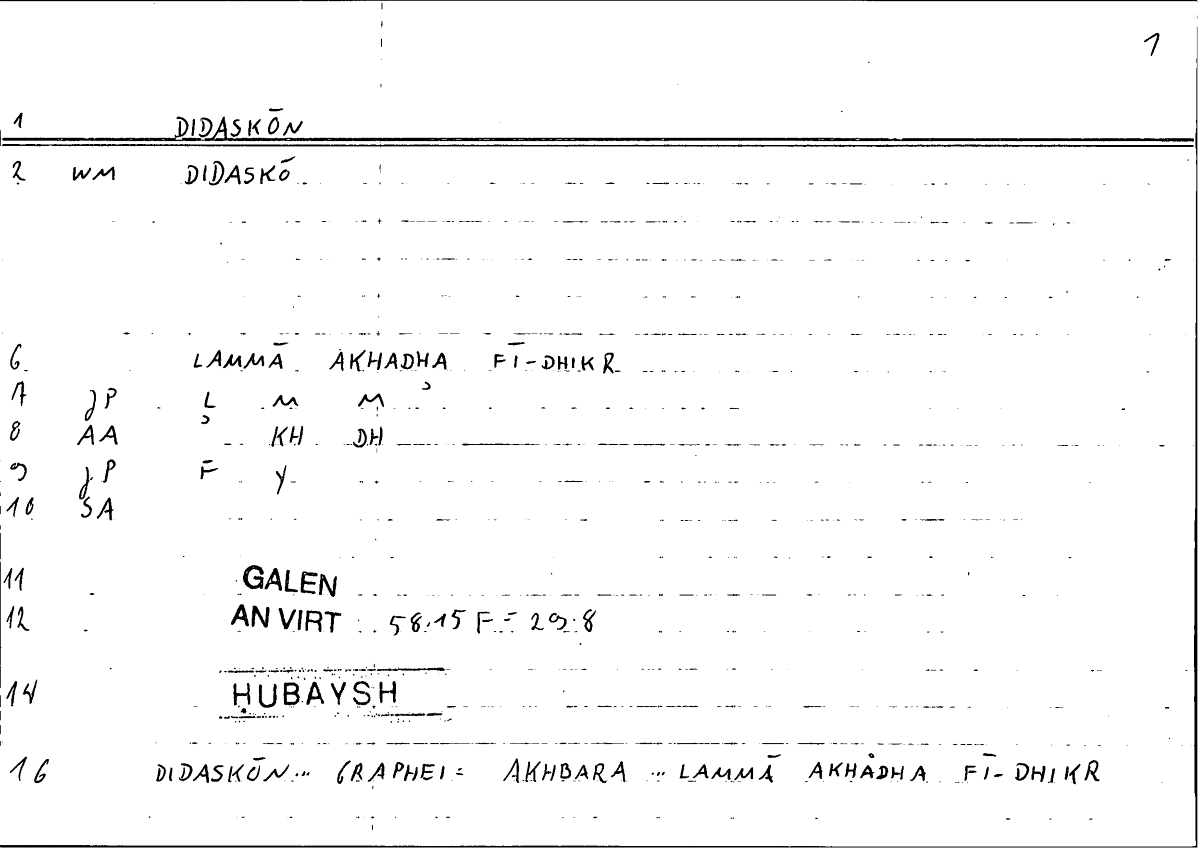 1
1 DIDASKŌN
2 WM DIDASKŌ
6 LAMMĀ AKHADHA FĪ-DHIKR
7 JP L M M ʾ
8 AA ʾ KH DH
9 JP F Y
10 SA
11 GALEN
12 AN VIRT 58.15 F = 29.8
14 ḤUBAYSH
16 DIDASKŌN... GRAPHEI = AKHBARA ... LAMMĀ AKHADHA FĪ-DHIKR